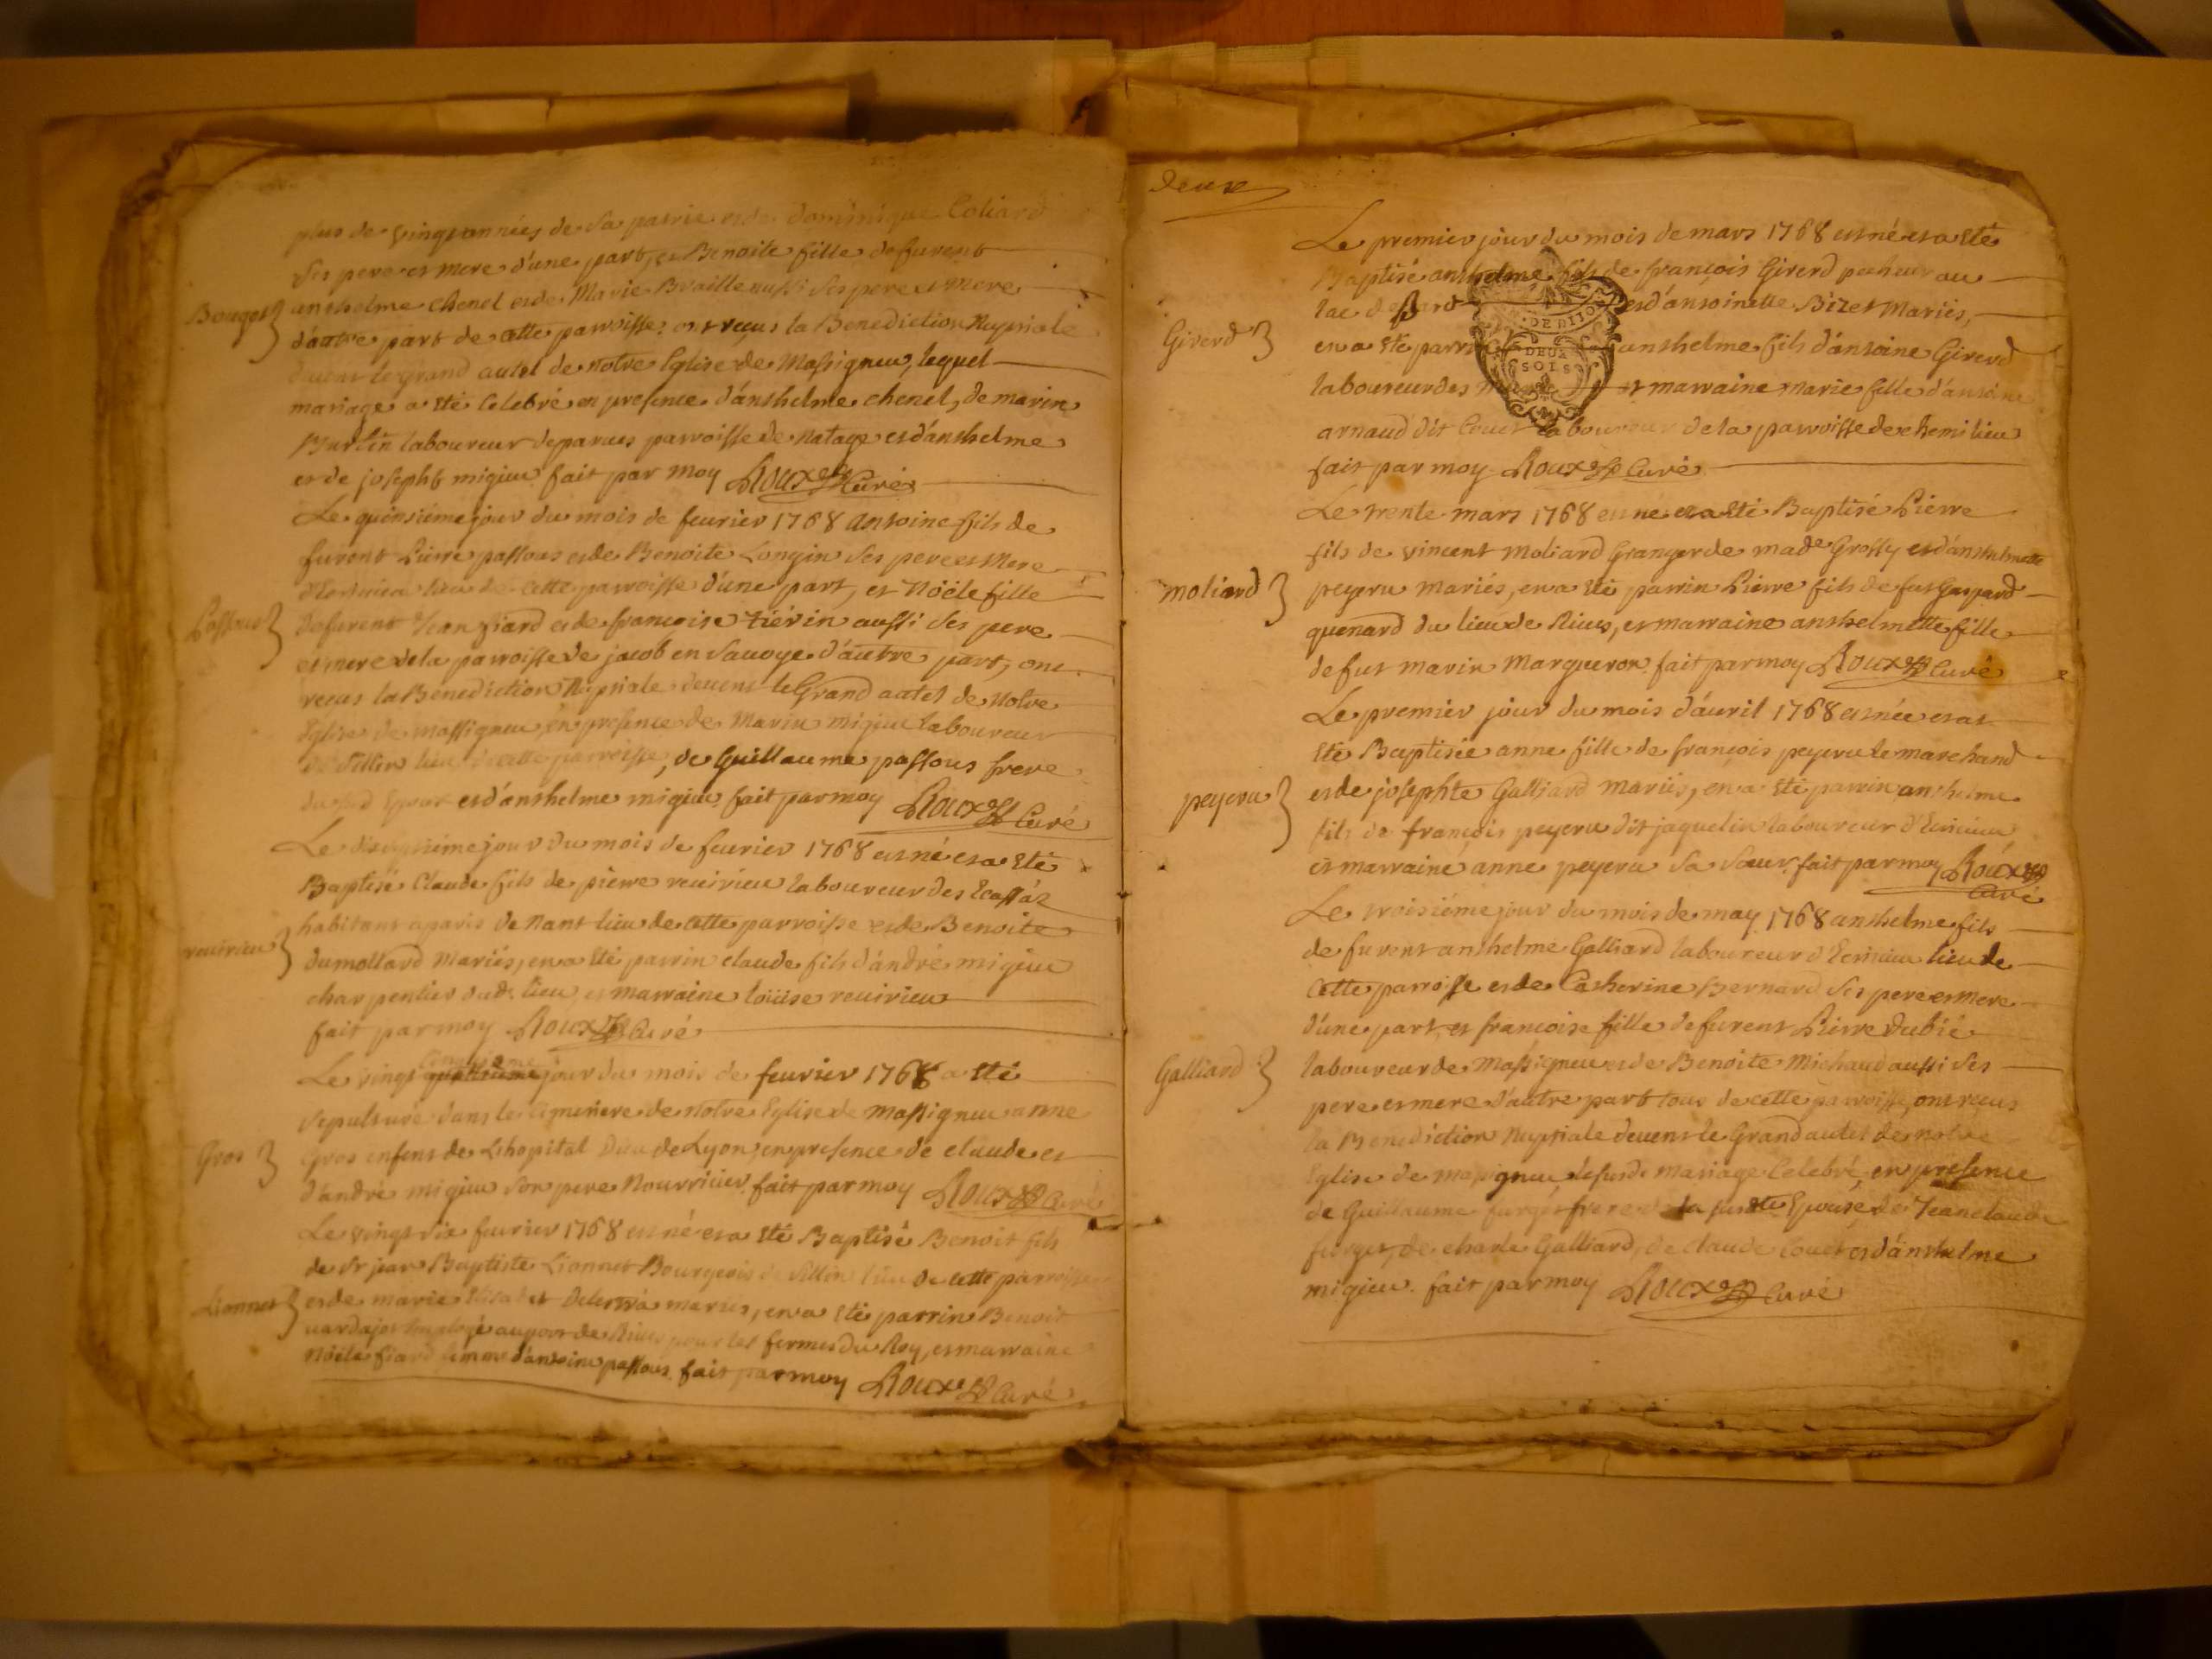 plus de vingt années de sa patrie et de dominique Coliard
ses pere et mere d'une part, et Benoite fille de furent
Bouget
anthelme chenel et de Marie Braille aussi ses pere et mere
d'autre part de cette parroisse ont reçus la Benediction Nuptiale
devent le grand autel de notre Eglise de Massigneu, lequel
mariage a eté Celebré en presence d'anthelme chenel, de marin
Burtin laboureur de parves parroisse de Natage et d'anthelme
et de josephte migieu fait par moy Roux Curé
Le quinsiéme jour du mois de feurier 1768 antoine fils de
furent Pierre passous et de Benoite Longin ses pere et Mere
lieu de cette parroisse d'une part, et Nöele fille
Passous
de furent Jean fiard et de francoise tiévin aussi ses pere
et mere de la parroisse de jacob en Savoye d'autre part, ont
recus la Benediction Nuptiale devent le Grand autel de Notre
Eglise de massigneu, en presence de Marin migieu laboureur
de Sillin lieu de cette parroisse, de Guillaume passous frere
dusd Epoux et d'anthelme migieu fait par moy Roux Curé
Le jour du mois de feurier 1768 est né et a eté
Baptisé Claude fils de pierre reuirieu laboureur des Ecassáz
habitant a paris de Nant lieu de cette parroisse et de Benoite
reuirieu
dumollard Mariés, en a eté parrin claude fils d'andré migieu
charpentier dud. lieu et marraine loüise reuirieu
fait par moy Roux Curé
Le vingt cinquieme jour du mois de feurier 1768 a eté
Sepulturé dans le cimetiere de notre Eglise de massigneu anne
Gros
Gros enfent de Lhopital Dieu de Lyon, en presence de claude et
d'andré migieu son pere Nourricier fait par moy Roux Curé
Le vingt six feurier 1768 est né et a eté Baptisé Benoit fils
de Sr jean Baptiste Lionnet Bourgeois de Sillin lieu de cette parroisse
Lionnet
et de marie Elisabet mariés, en a eté parrin Benoit
Employé au port de Rives pour les fermes du Roy, et marraine
Nöele fiard femme d'antoine passous fait par moy Roux Curé
deux
Le premier jour du mois de mars 1768 est né et a eté
Baptisé anthelme fils de françois Girerd pecheur au
lac de et d'antoinette Bizet Mariés,
DE DIJON
Girerd
en a eté parrin anthelme fils d'antoine Girerd
DEUX
SOLS
laboureur des et marraine marie fille d'antoine
arnaud dit Couet laboureur de la parroisse de chemilieu
fait par moy Roux Curé
Le trente mars 1768 est né et a eté Baptisé Pierre
fils de vincent Moliard Granger de made Grossy et d'anthelmette
moliard
peyeru mariés, en a eté parrin Pierre fils de fut Gaspard
quenard du lieu de Rives, et marraine anthelmette fille
de fut marin Margueron fait par moy Roux Curé
Le premier jour du mois d'auril 1768 est née et at
eté Baptisée anne fille de françois peyeru le marchand
peyeru
et de josephte Galliard mariés, en a eté parrin anthelme
fils de françois peyeru dit jaquelin laboureur d'Ecrivieu
et marraine anne peyeru sa sœur fait par moy Roux
Curé
Le troisiéme jour du mois de may 1768 anthelme fils
de furent anthelme Galliard laboureur d'Ecrivieu lieu de
Cette parroisse et de Catherine Bernard ses pere et mere
d'une part, et francoise fille de furent Pierre dubié
Galliard
laboureur de Massigneu et de Benoite Michaud aussi ses
pere et mere d'autre part tous de cette parroisse, ont recus
la Benediction Nuptiale devent le Grand autel de notre
Eglise de massigneu, lesusd. mariage Celebré en presence
de Guillaume furget frere de la susdte Epouse de Jeanclaude
furget, de charle Galliard, de Claude Couet et d'anthelme
migieu. fait par moy Roux Curé